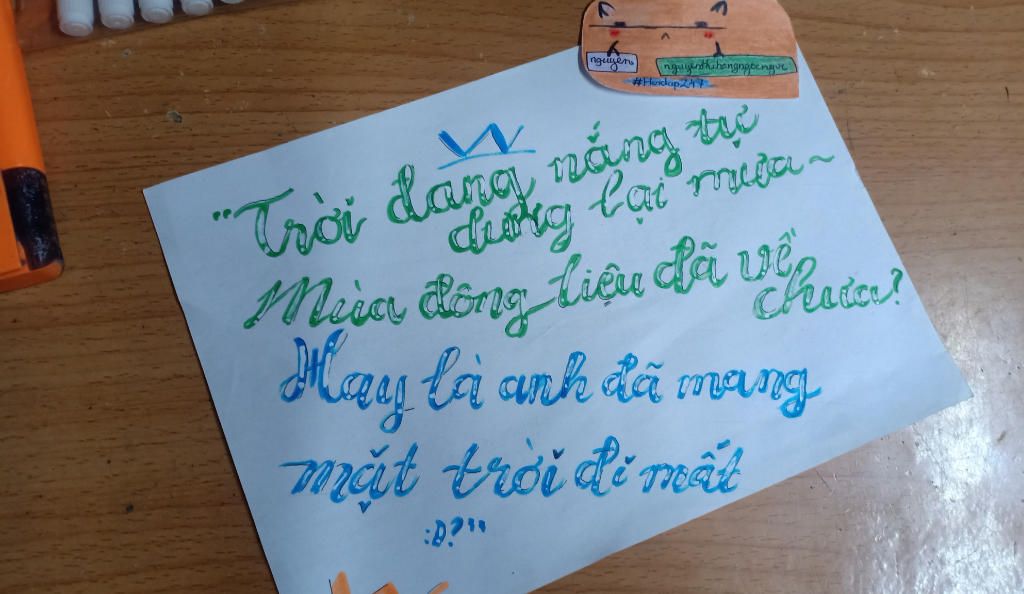 nguyen
nguyenthihongngocnguyen
#Hoidap247
"Trời đang nắng tự
dưng lại mưa~
Mùa đông liệu đã về
chưa?
Hay là anh đã mang
mặt trời đi mất
:Đ?"